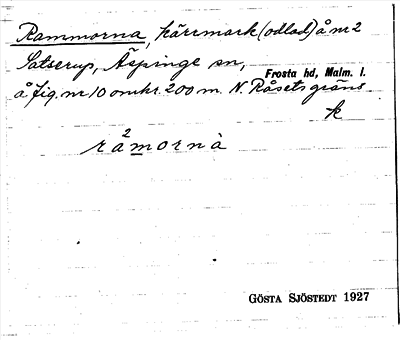 Rammorna, kärrmark (odlad) å nr 2
Satserup, Äspinge sn, Frosta hd, Malm. l.
å fig. nr 10 omkr. 200 m. N. Råsets gräns.
k
rå2mornà
GÖSTA SJÖSTEDT 1927